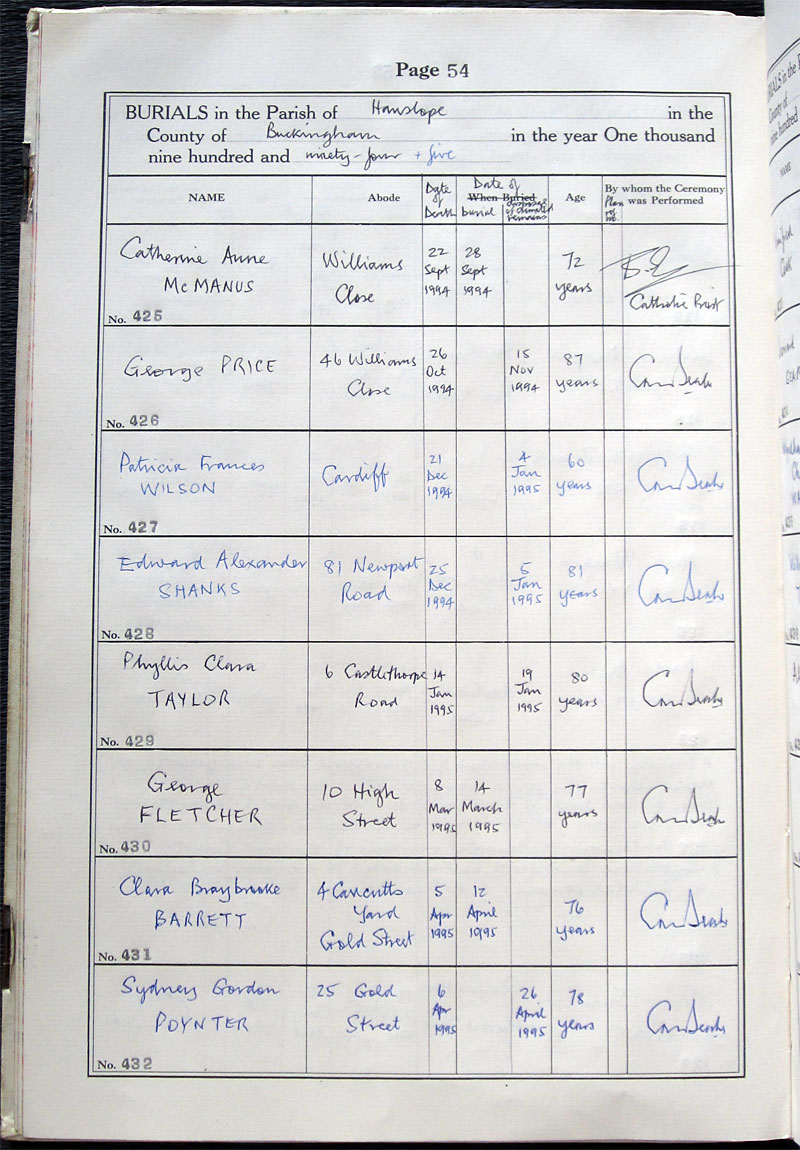 Page 54
BURIALS in the Parish of Hanslope in the
County of Buckingham in the year One thousand
nine hundred and ninety-four + five
NAME
Abode
Date of Death
Date of
When Buried
burial
disposal of cremated remains
Age
By whom the Ceremony
was Performed
Plan
Catherine Anne
McMANUS
No. 425
Williams
Close
22
Sept
1994
28
Sept
1994
72
years
Catholic Priest
George PRICE
No. 426
46 Williams
Close
26
Oct
1994
15
Nov
1994
87
years
Patricia Frances
WILSON
No. 427
Cardiff
21
Dec
1994
4
Jan
1995
60
years
Edward Alexander
SHANKS
No. 428
81 Newport
Road
25
Dec
1994
5
Jan
1995
81
years
Phyllis Clara
TAYLOR
No. 429
6 Castlethorpe
Road
14
Jan
1995
19
Jan
1995
80
years
George
FLETCHER
No. 430
10 High
Street
8
Mar
1995
14
March
1995
77
years
Clara Braybrooke
BARRETT
No. 431
4 Cancutts
Yard
Gold Street
5
Apr
1995
12
April
1995
76
years
Sydney Gordon
POYNTER
No. 432
25 Gold
Street
6
Apr
1995
26
April
1995
78
years